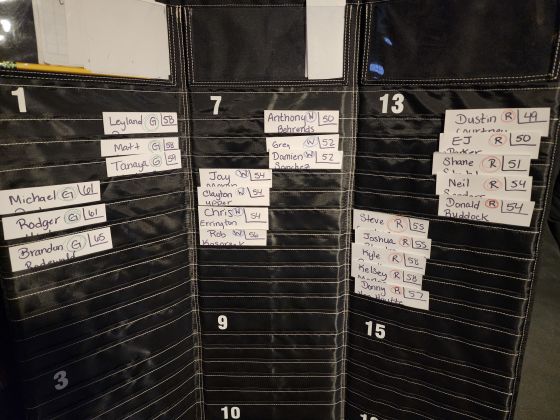 1
Leyland G 58
Matt G 58
Tanaya G 59
Michael G 61
Rodger G 61
Brandon G 65
3
7
Anthony W 50
Behrends
Greg W 52
Damien W 52
Sanchez
Jay W 54
Clayton W 54
Chris W 54
Errington
Rob W 56
9
10
13
Dustin R 49
Courtney
EJ R 50
Shane R 51
Neil R 54
Donald R 54
Ruddock
Steve R 55
Joshua R 55
Kyle R 58
Kelsey R 58
Donny R 57
15